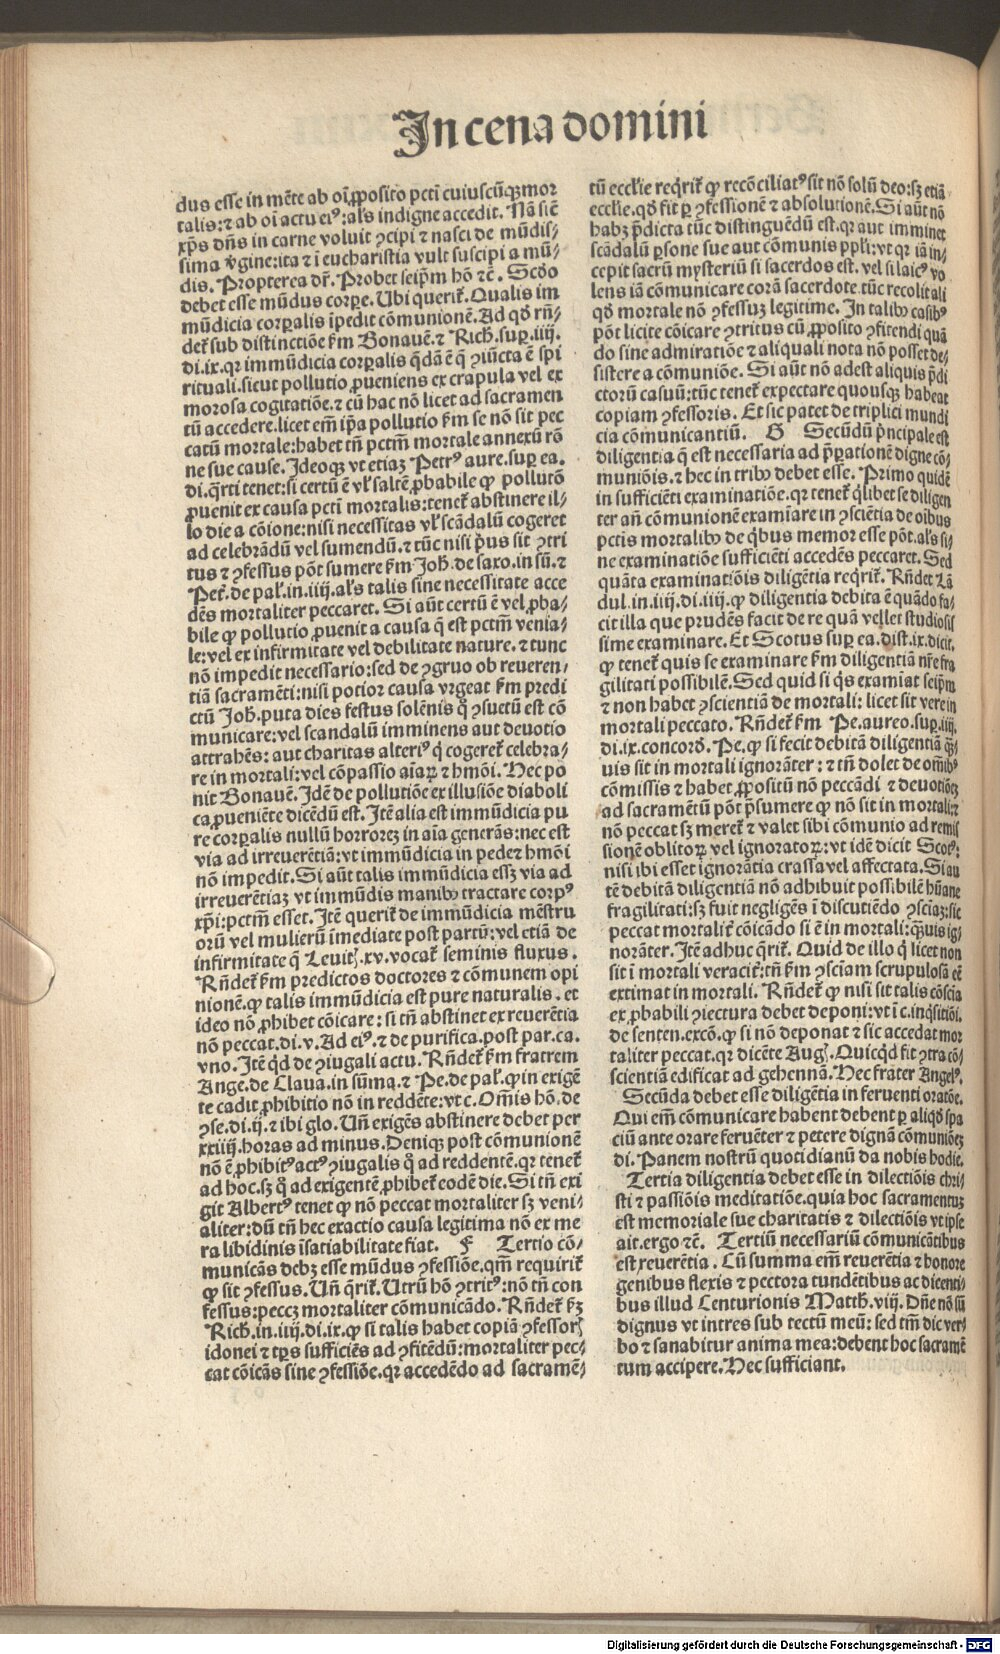 In cena domini
dus esse in mẽte ab oĩ ꝓposito pctĩ cuiuscũqꝫ mor
talis: ⁊ ab oĩ actu eiꝰ: al's indigne accedit. Nã sic̃
xp̃s dñs in carne voluit ꝯcipi ⁊ nasci de mũdis-
sima v̾gine: ita ⁊ ĩ eucharistia vult suscipi a mũ-
dis. Propterea dr̃. Probet seip̃m hõ ⁊c̃. Scd̾o
debet esse mũdus corꝑe. Ubi querit̃. Qualis im
mũdicia corꝑalis ĩpedit cõmunionẽ. Ad qd̾ rñ-
det̃ sub distinctiõe ẜm Bonauẽ. ⁊ Rich. suꝑ .iiij.
di.ix. qꝛ immũdicia corꝑalis q̃dã ẽ q̃ ꝯiũcta ẽ spi
rituali. sicut pollutio ꝓueniens ex crapula vel ex
morosa cogitatiõe. ⁊ cũ hac nõ licet ad sacramen
tũ accedere. licet em̃ ip̃a pollutio ẜm se nõ sit pec
catũ mortale: habet tñ pctm̃ mortale annexũ rõ
ne sue cause. Ideoqꝫ vt etiaꝫ Petrꝰ aure. suꝑ ea.
di. q̃rti tenet: si certũ ẽ vl' saltẽ ꝓbabile ꝙ pollutõ
ꝓuenit ex causa pctĩ mortalis: tenet̃ abstinere il-
lo die a cõione: nisi necessitas vl' scãdalũ cogeret
ad celebrãdũ vel sumendũ. ⁊ tũc nisi p̾us sit ꝯtri
tus ⁊ ꝯfessus põt sumere ẜm Joh. de saxo. in sũ. ⁊
Pet̃. de pal'. in .iiij. al's talis sine necessitate acce
dẽs mortaliter peccaret. Si aũt certũ ẽ vel ꝓba-
bile ꝙ pollutio ꝓuenit a causa q̃ est pctm̃ venia-
le: vel ex infirmitate vel debilitate nature. ⁊ tunc
nõ impedit necessario: sed de ꝯgruo ob reueren-
tiã sacramẽti: nisi potior causa vrgeat ẜm predi
ctũ Joh. puta dies festus solẽnis q̊ ꝯsuetũ est cõ
municare: vel scandalũ imminens aut deuotio
attrahẽs: aut charitas alteriꝰ q̃ cogeret̃ celebra-
re in mortali: vel cõpassio aĩaꝝ ⁊ hmõi. Hec po
nit Bonauẽ. Idẽ de pollutiõe ex illusiõe diaboli
ca ꝓueniẽte dicẽdũ est. Itẽ alia est immũdicia pu
re corꝑalis nullũ horrorẽ in aĩa generãs: nec est
via ad irreuerẽtiã: vt immũdicia in pede ⁊ hmõi
nõ impedit. Si aũt talis immũdicia essꝫ via ad
irreuerẽtiaꝫ vt immũdis manibꝫ tractare corpꝰ
xp̃i: pctm̃ esset. Itẽ querit̃ de immũdicia mẽstru
orũ vel mulierũ ĩmediate post partũ: vel etiã de
infirmitate q̃ Leuit̃. xv. vocat̃ seminis fluxus.
Rñdet̃ ẜm predictos doctores ⁊ cõmunem opi
nionẽ. ꝙ talis immũdicia est pure naturalis. et
ideo nõ ꝓhibet cõicare: si tñ abstinet ex reuerẽtia
nõ peccat. di. v. Ad eiꝰ. ⁊ de purifica. post par. ca.
vno. Itẽ q̃d de ꝯiugali actu. Rñdet̃ ẜm fratrem
Ange. de Claua. in sũma. ⁊ Pe. de pal'. ꝙ in exigẽ
te cadit ꝓhibitio nõ in reddẽte: vt c. Om̃is hõ. de
ꝯse. di. ij. ⁊ ibi glo. Uñ exigẽs abstinere debet per
xxiiij. horas ad minus. Deniqꝫ post cõmunionẽ
nõ ẽ ꝓhibitꝰ actꝰ ꝯiugalis q̊ ad reddentẽ. qꝛ tenet̃
ad hoc. sꝫ q̊ ad exigentẽ ꝓhibet̃ eodẽ die. Si tñ exi
git Albertꝰ tenet ꝙ nõ peccat mortaliter sꝫ veni-
aliter: dũ tñ hec exactio causa legitima nõ ex me
ra libidinis ĩsatiabilitate fiat. F Tertio cõ-
municãs debꝫ esse mũdus ꝯfessiõe. qm̃ requirit̃
ꝙ sit ꝯfessus. Uñ q̃rit̃. Utrũ hõ ꝯtritꝰ: nõ tñ con
fessus: peccꝫ mortaliter cõmunicãdo. Rñdet̃ ẜꝫ
Rich. in .iiij. di. ix. ꝙ si talis habet copiã ꝯfessor̃
idonei ⁊ tp̃s sufficiẽs ad ꝯfitẽdũ: mortaliter pec-
cat cõicãs sine ꝯfessiõe. qꝛ accedẽdo ad sacramẽ-
tũ eccl'ie reqrit̃ ꝙ recõciliatꝰ sit nõ solũ deo: sꝫ etiã
eccl'ie. qd̾ fit ꝑ ꝯfessionẽ ⁊ absolutionẽ. Si aũt nõ
habꝫ p̃dicta tũc distinguẽdũ est. qꝛ aut imminet
scãdalũ ꝑsone sue aut cõmunis ppl'i: vt qꝛ iã in-
cepit sacrũ mysteriũ si sacerdos est. vel si laicꝰ vo
lens iã cõmunicare corã sacerdote. tũc recolit ali
qd̾ mortale nõ ꝯfessuꝫ legitime. In talibꝫ casibꝰ
põt licite cõicare ꝯtritus cũ ꝓposito ꝯfitendi quã
do sine admiratiõe ⁊ aliquali nota nõ posset de-
sistere a cõmuniõe. Si aũt nõ adest aliquis p̃di
ctorũ casuũ: tũc tenet̃ expectare quousqꝫ habeat
copiam ꝯfessoris. Et sic patet de triplici mundi
cia cõmunicantiũ. G Secũdũ p̾ncipale est
diligentia q̃ est necessaria ad p̃ꝑationẽ digne cõ-
muniõis. ⁊ hec in tribꝫ debet esse. Primo quidẽ
in sufficiẽti examinatiõe. qꝛ tenet̃ q̾libet se diligen
ter añ cõmunionẽ examĩare in ꝯsciẽtia de oĩbus
pctis mortalibꝫ de q̾bus memor esse põt. al's si-
ne examinatiõe sufficiẽti accedẽs peccaret. Sed
quãta examinatiõis diligẽtia reqrit̃. Rñdet Lã
dul. in .iiij. di. iiij. ꝙ diligentia debita ẽ quãdo fa-
cit illa que prudẽs facit de re quã vellet studiosis
sime examinare. Et Scotus suꝑ ea. dist. ix. dicit.
ꝙ tenet̃ quis se examinare ẜm diligentiã nr̃e fra
gilitati possibilẽ. Sed quid si q̾s examĩat seip̃m
⁊ non habet ꝯscientiã de mortali: licet sit vere in
mortali peccato. Rñdet̃ ẜm Pe. aureo. suꝑ .iiij.
di. ix. concord̾. Pe. ꝙ si fecit debitã diligentiã q̃ꝫ-
uis sit in mortali ignorãter: ⁊ tñ dolet de om̃ibꝰ
cõmissis ⁊ habet ꝓpositũ nõ peccãdi ⁊ deuotiõeꝫ
ad sacramẽtũ põt p̃sumere ꝙ nõ sit in mortali: ⁊
nõ peccat sꝫ meret̃ ⁊ valet sibi cõmunio ad remis
sionẽ oblitoꝝ vel ignoratoꝝ: vt idẽ dicit Scotꝰ:
nisi ibi esset ignorãtia crassa vel affectata. Si au
tẽ debitã diligentiã nõ adhibuit possibilẽ hũane
fragilitati: sꝫ fuit negligẽs ĩ discutiẽdo ꝯsciaꝫ: sic
peccat mortalit̃ cõicãdo si ẽ in mortali: q̃ꝫuis ig-
norãter. Itẽ adhuc q̃rit̃. Quid de illo q̃ licet non
sit ĩ mortali veracit̃: tñ ẜm ꝯsciam scrupulosã eẽ
extimat in mortali. Rñdet̃ ꝙ nisi sit talis cõscia
ex ꝓbabili ꝯiectura debet deponi: vt ĩ c. inq̾sitiõi.
de senten. excõ. ꝙ si nõ deponat ⁊ sic accedat mor
taliter peccat. qꝛ dicẽte Aug. Quicq̾d fit ꝯtra cõ-
scientiã edificat ad gehennã. Hec frater Angelꝰ.
Secũda debet esse diligẽtia in feruenti oratõe.
Qui em̃ cõmunicare habent debent ꝑ aliqd̾ spa
ciũ ante orare feruẽter ⁊ petere dignã cõmuniõeꝫ
di. Panem nostrũ quotidianũ da nobis hodie.
Tertia diligentia debet esse in dilectiõis chri-
sti ⁊ passiõis meditatiõe. quia hoc sacramentuꝫ
est memoriale sue charitatis ⁊ dilectiõis vt ipse
ait. ergo ⁊c̃. Tertiũ necessariũ cõmunicãtibus
est reuerẽtia. Cũ summa em̃ reuerẽtia ⁊ honore
genibus flexis ⁊ pectora tundẽtibus ac dicenti-
bus illud Centurionis Matth. viij. Dñe nõ sũ
dignus vt intres sub tectũ meũ: sed tm̃ dic ver-
bo ⁊ sanabitur anima mea: debent hoc sacramẽ
tum accipere. Hec sufficiant.
Digitalisierung gefördert durch die Deutsche Forschungsgemeinschaft - DFG